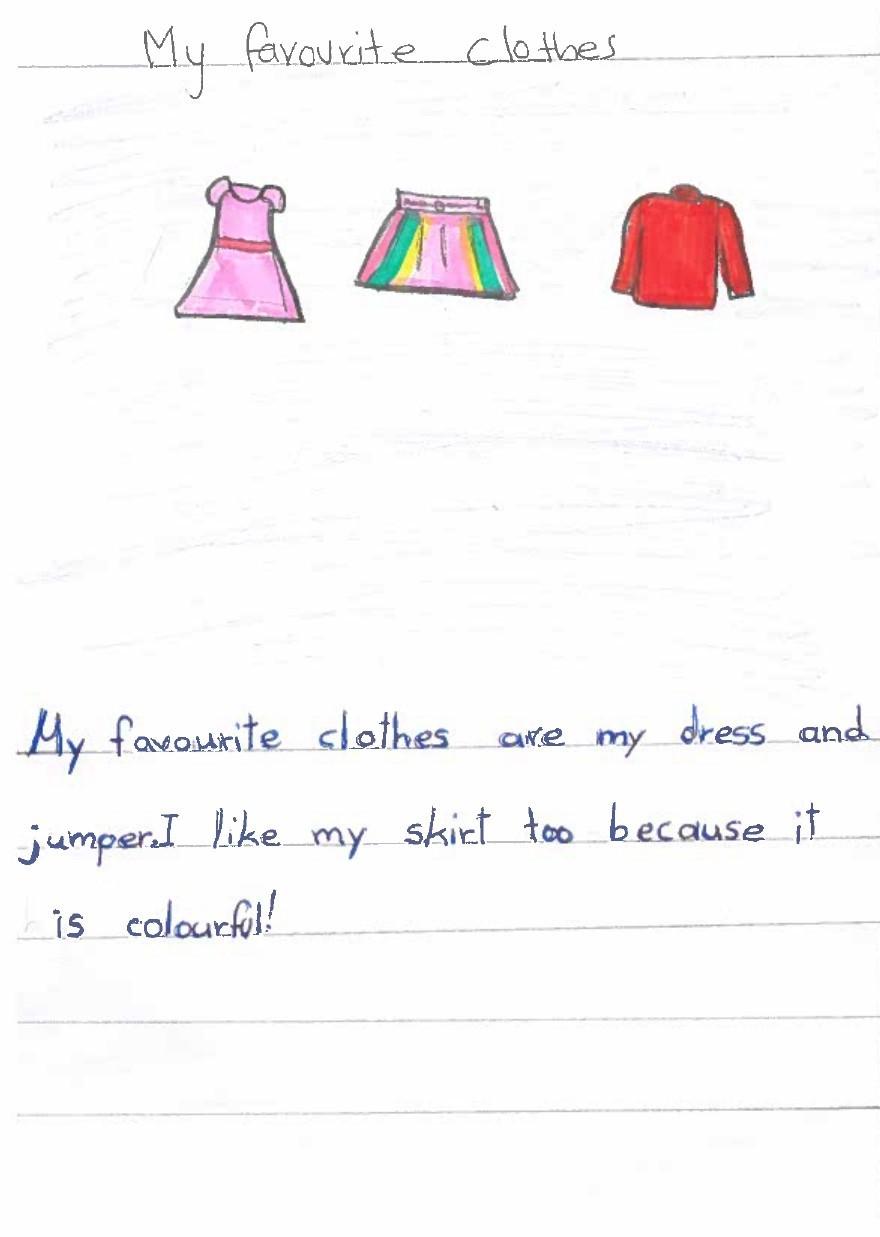 My favourite clothes
My favourite clothes are my dress and
jumper.I like my skirt too because it
is colourful!